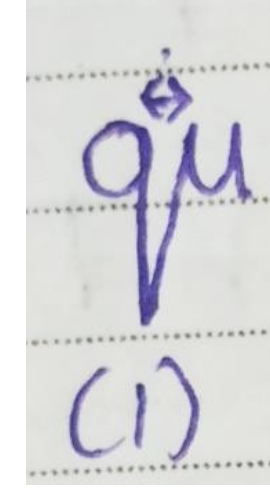 ↔
qu
(1)